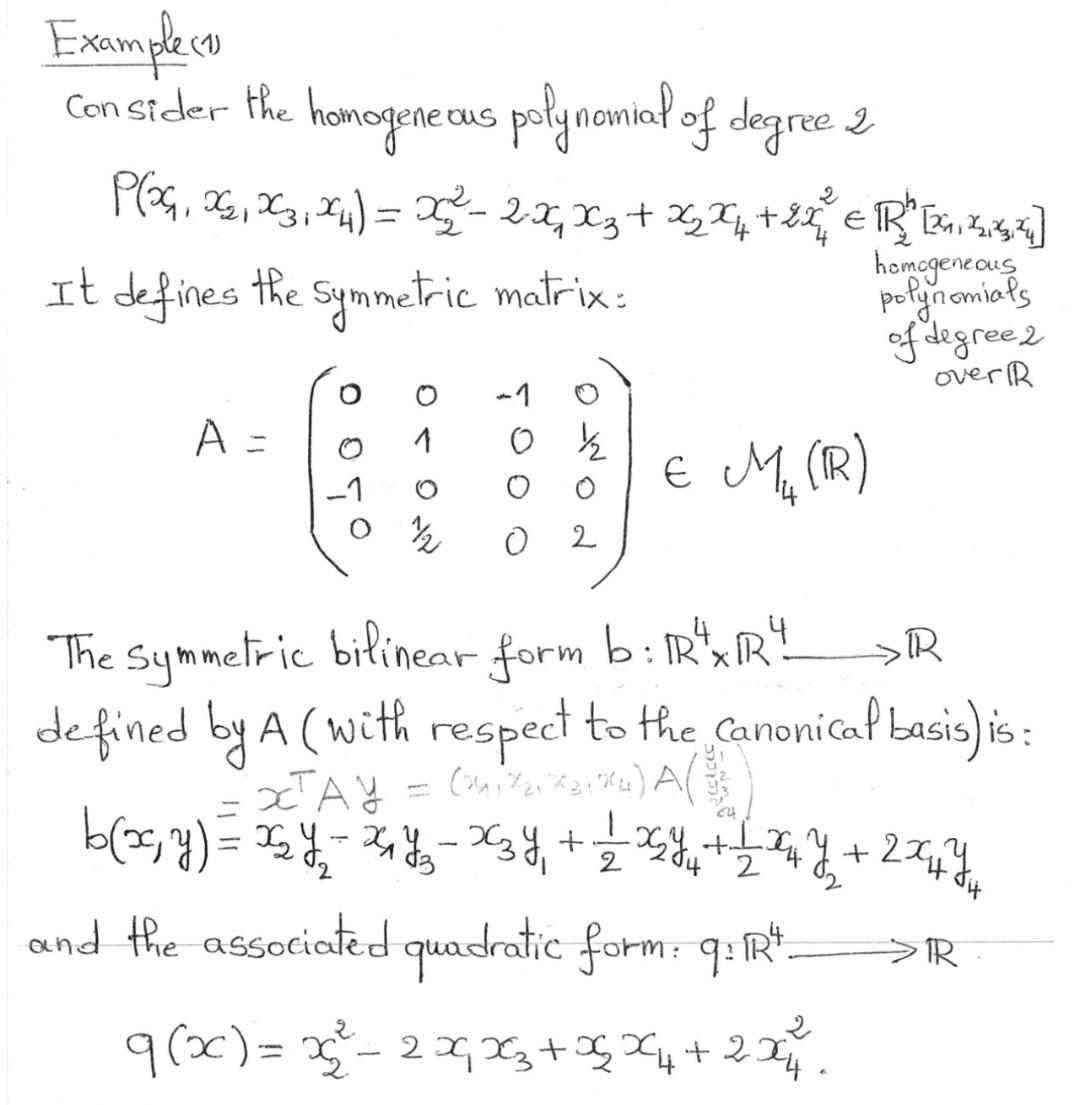 Example (1)
Consider the homogeneous polynomial of degree 2
P(x₁, x₂, x₃, x₄) = x₂² - 2x₁x₃ + x₂x₄ + 2x₄² ∈ ℝ₂ʰ[x₁, x₂, x₃, x₄]
homogeneous
polynomials
of degree 2
over ℝ
It defines the symmetric matrix:
0 0 -1 0
A = 0 1 0 ½ ∈ M₄(ℝ)
-1 0 0 0
0 ½ 0 2
The symmetric bilinear form b: ℝ⁴ × ℝ⁴ → ℝ
defined by A (with respect to the canonical basis) is:
= xᵀAy = (x₁, x₂, x₃, x₄) A (y₁ y₂ y₃ y₄)
b(x,y) = x₂y₂ - x₁y₃ - x₃y₁ + 1/2 x₂y₄ + 1/2 x₄y₂ + 2x₄y₄
and the associated quadratic form: q: ℝ⁴ → ℝ
q(x) = x₂² - 2x₁x₃ + x₂x₄ + 2x₄².